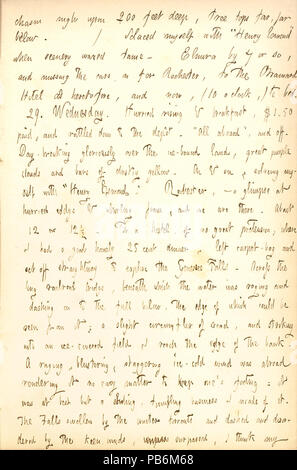 chasm nigh upon 200 feet deep, tree tops far, far
below. / Solaced myself with "Henry Esmond"
when scenery waxed tame. Elmira by 7 or so,
and missing the cars, on for Rochester, to the Brainard
Hotel as heretofore, and now, (10 o'clock,) to bed.
29. Wednesday. Hurried rising & breakfast, $1.50
paid, and rattled down to the depot. "All aboard", and off.
Day-breaking gloriously over the ice-bound lands, great purple
clouds and bars of dusky yellow. On & on, solacing my-
self with "Henry Esmond". Rochester, a glimpse at
hurried edge & and we are there. About
12 or 12½. To a hotel of no great pretension, where
I had a good, homely 25 cent dinner, left carpet-bag and
set off straightway to explore the Genesee Falls. Across the
big railroad bridge, beneath which the water was raging and
dashing on to the fall below, the edge of which could be
seen from it; a slight circumflex of road, and
into an ice-covered field I reach the edge of the bank.
A raging, blustering, staggering ice-cold wind was abroad
rendering it no easy matter to keep one's footing; it
was at best but a sliding, business I made of it.
The Falls swollen by the torrents and dashed and dan-
dered by the keen winds, surpassed, I think my
alamy
alamy
Image ID: PB6M68
www.alamy.com